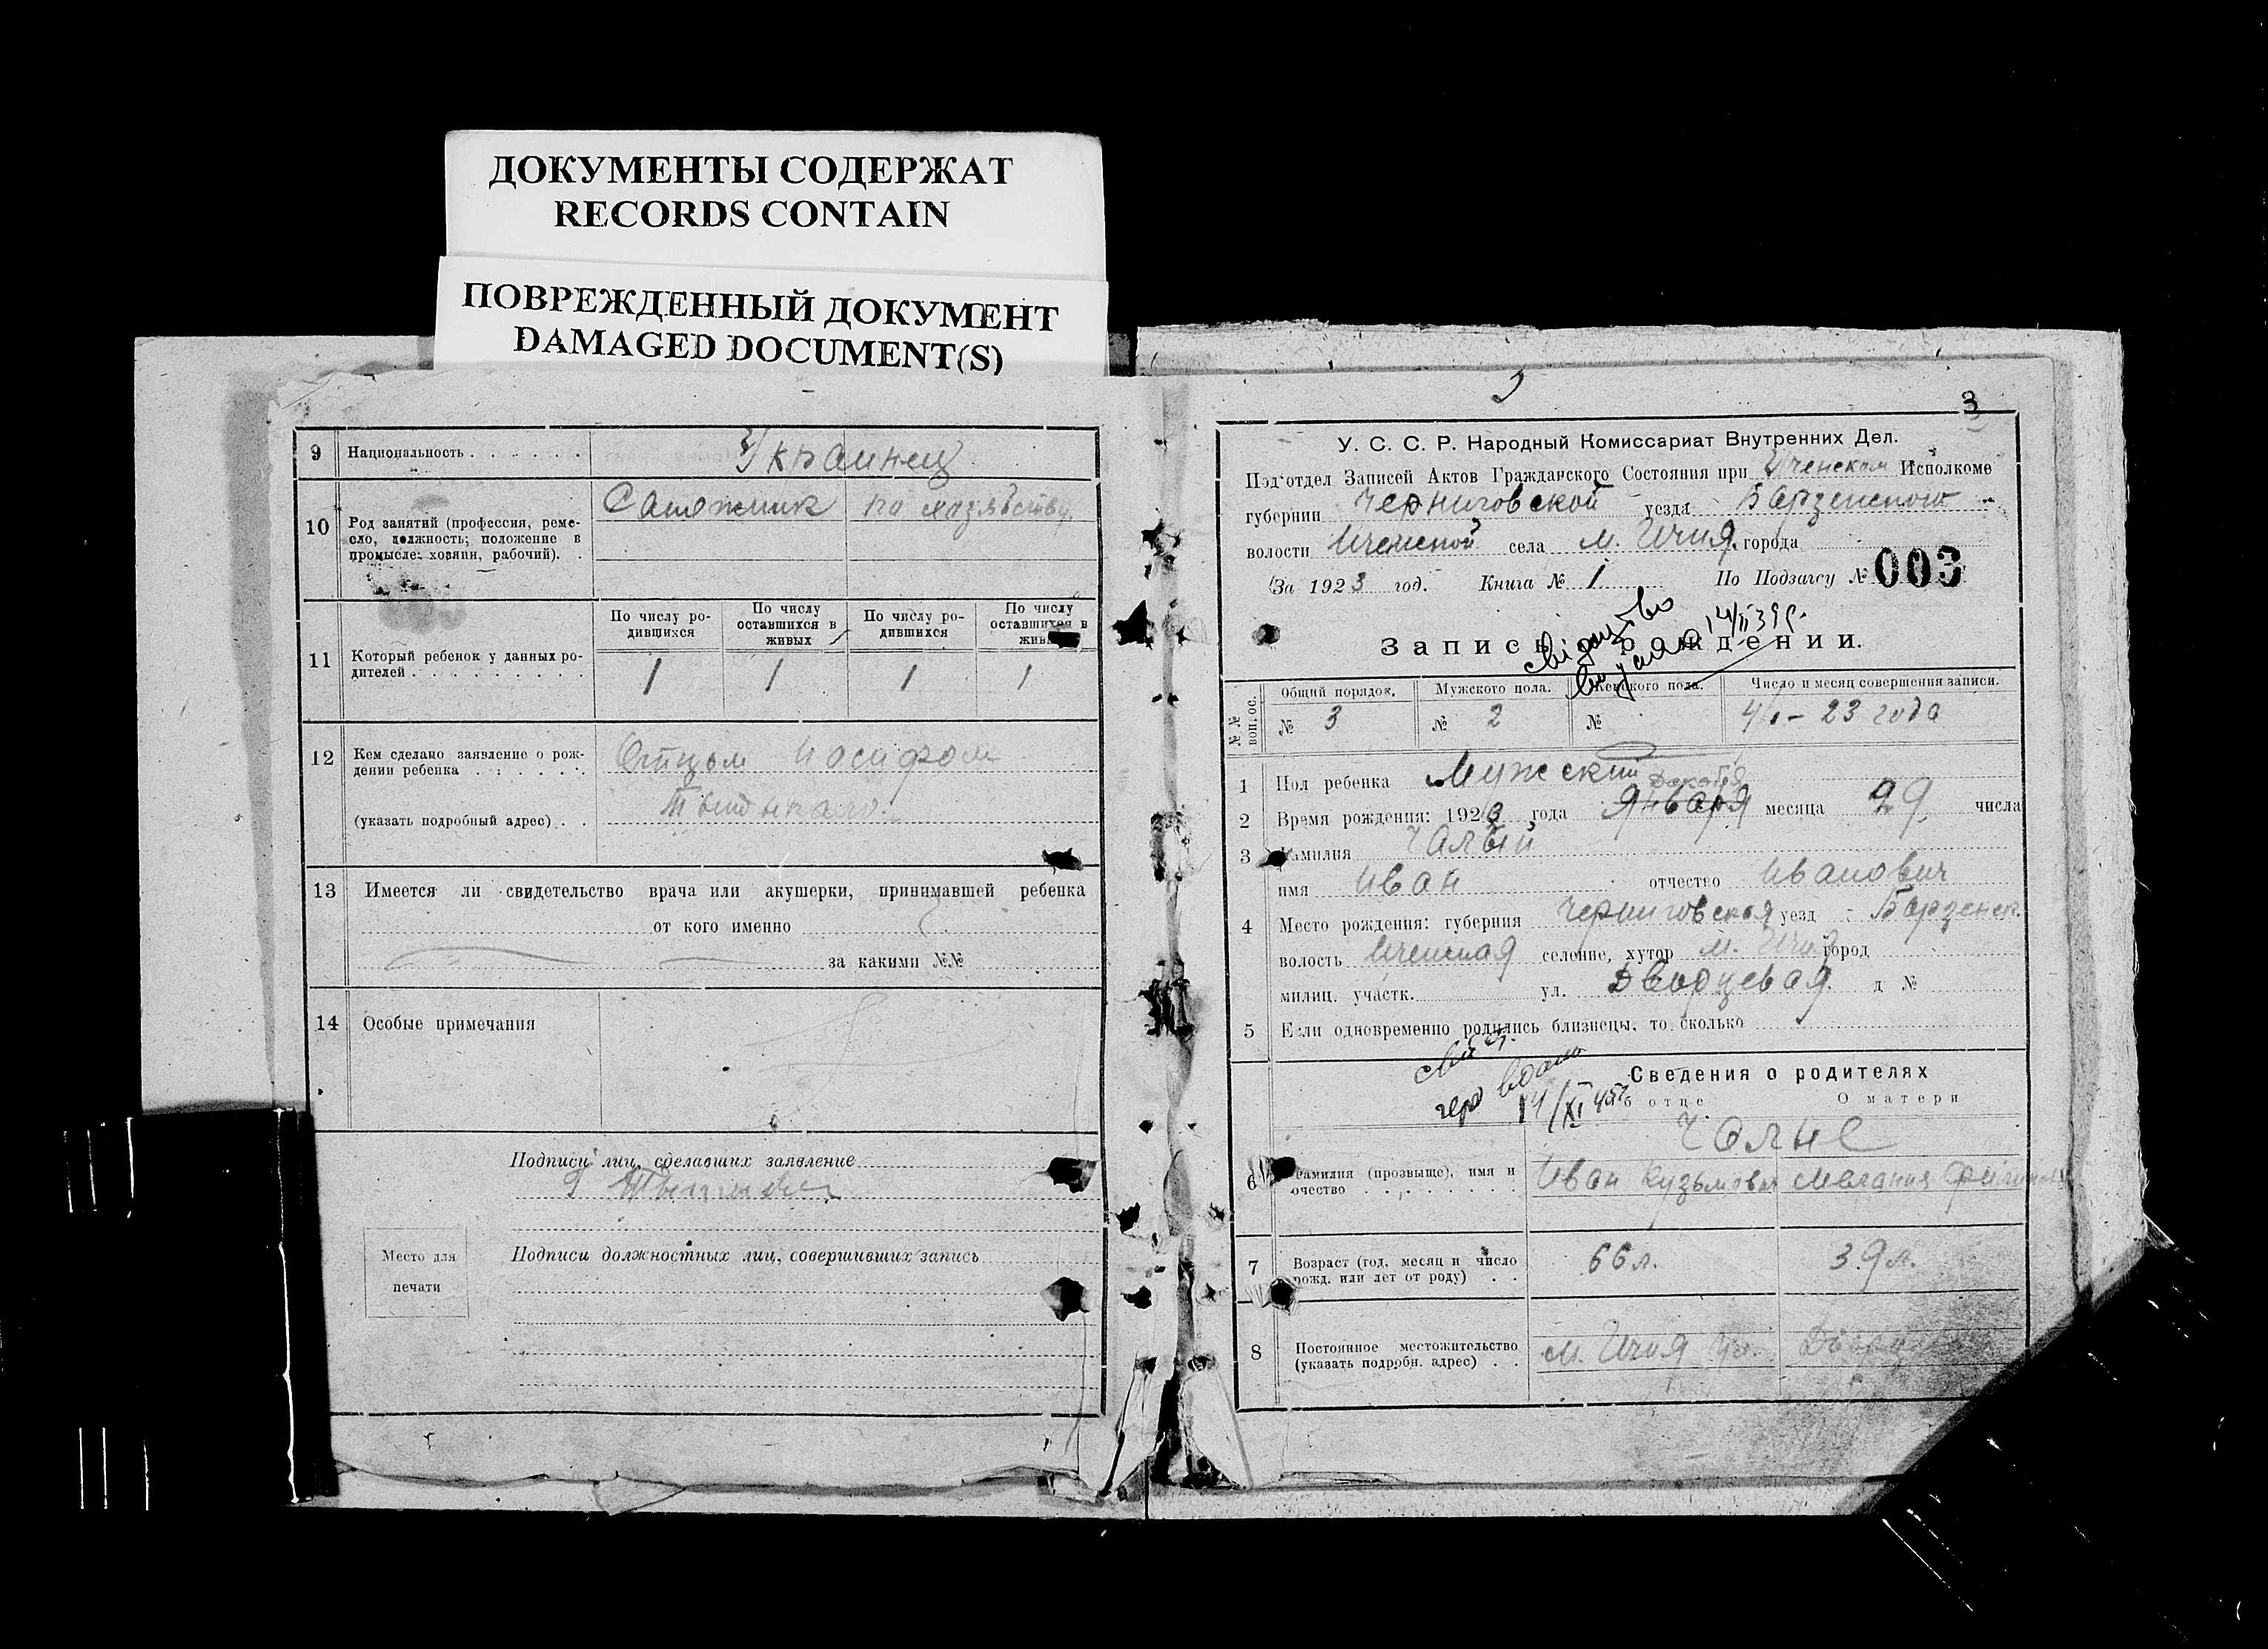 ДОКУМЕНТЫ СОДЕРЖАТ
RECORDS CONTAIN
ПОВРЕЖДЕННЫЙ ДОКУМЕНТ
DAMAGED DOCUMENT(S)
9 Национальность . . . . . . Украинец
10 Род занятий (профессия, реме-
сло, должность; положение в
промысле: хозяин, рабочий). .
Сапожник
По числу ро-
дившихся
По числу
оставшихся в
живых
По числу ро-
дившихся
По числу
оставшихся в
живых
11 Который ребенок у данных ро-
дителей . . . . . . . . . 1 1 1 1
12 Кем сделано заявление о рож-
дении ребенка . . . . . . Отцом Иосифом
(указать подробный адрес) . .
13 Имеется ли свидетельство врача или акушерки, принимавшей ребенка
от кого именно
за какими №№
14 Особые примечания
Подписи лиц, сделавших заявление
Место для
печати
Подписи должностных лиц, совершивших запись
3
У. С. С. Р. Народный Комиссариат Внутренних Дел.
Под'отдел Записей Актов Гражданского Состояния при Иченском Исполкоме
губернии Черниговской уезда Борзенского
волости Иченской села м. Ичня города
За 1923 год. Книга № 1 По Подзагсу № 003
Запись о рождении.
№№ воп. ос.
Общий порядок. Мужского пола. Женского пола. Число и месяц совершения записи.
№ 3 № 2 № 4/I - 23 года
1 Пол ребенка Мужский
декабря
2 Время рождения: 192 года Января месяца 29 числа
3 Фамилия Чалый
имя Иван отчество Иванович
4 Место рождения: губерния Черниговская уезд Борзенск.
волость Иченская селение, хутор м. Ичня город
милиц. участк. ул. Дворцевая д №
5 Если одновременно родились близнецы, то сколько
14/XI 45
Сведения о родителях
Об отце О матери
6 Фамилия (прозвыще), имя и
отчество . . . . . . . .
Иван Кузьмович Мелания
7 Возраст (год, месяц и число
рожд. или лет от роду) . . 66 л. 39 л.
8 Постоянное местожительство
(указать подробн. адрес) . . м. Ичня